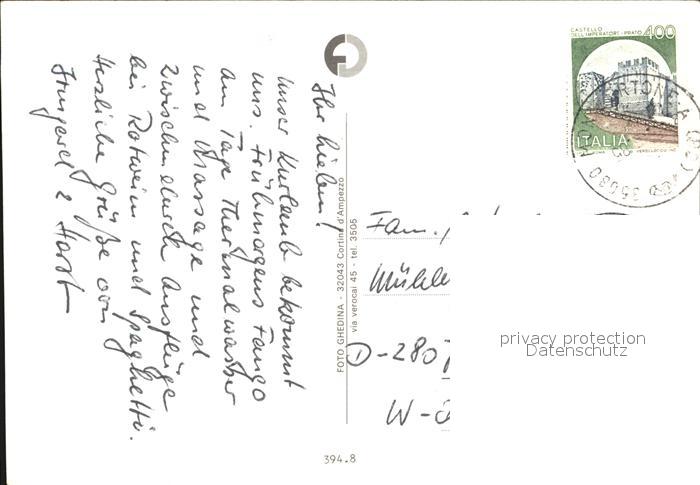 Ihr Lieben!
Unser Kurlaub bekommt
uns. Frühmorgens Fango
und Massage und
am Tage Thermalwasser
Zwischendurch Ausflüge
bei Rotwein und Spaghetti.
Herzliche Grüße von
Irmgard & Horst
FOTO GHEDINA - 32043 Cortina d'Ampezzo
via verocai 45 - tel. 3505
CASTELLO
DELL'IMPERATORE - PRATO
400
ITALIA
35030
Fam.
Mühle
D-280
W-
privacy protection
Datenschutz
394.8